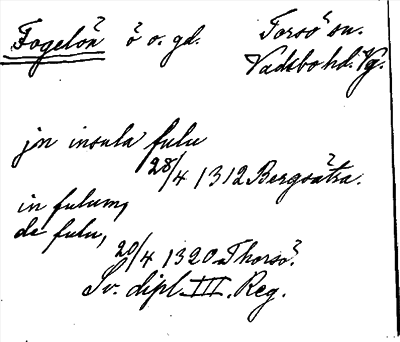 Fogelön ö o. gd. Torsö sn.
Vadsbo hd. Vg.
jn insula fulu
28/4 1312 Bergsätra.
in fulum,
de fulu,
20/4 1320 Thorsö.
Sv. dipl. III. Reg.